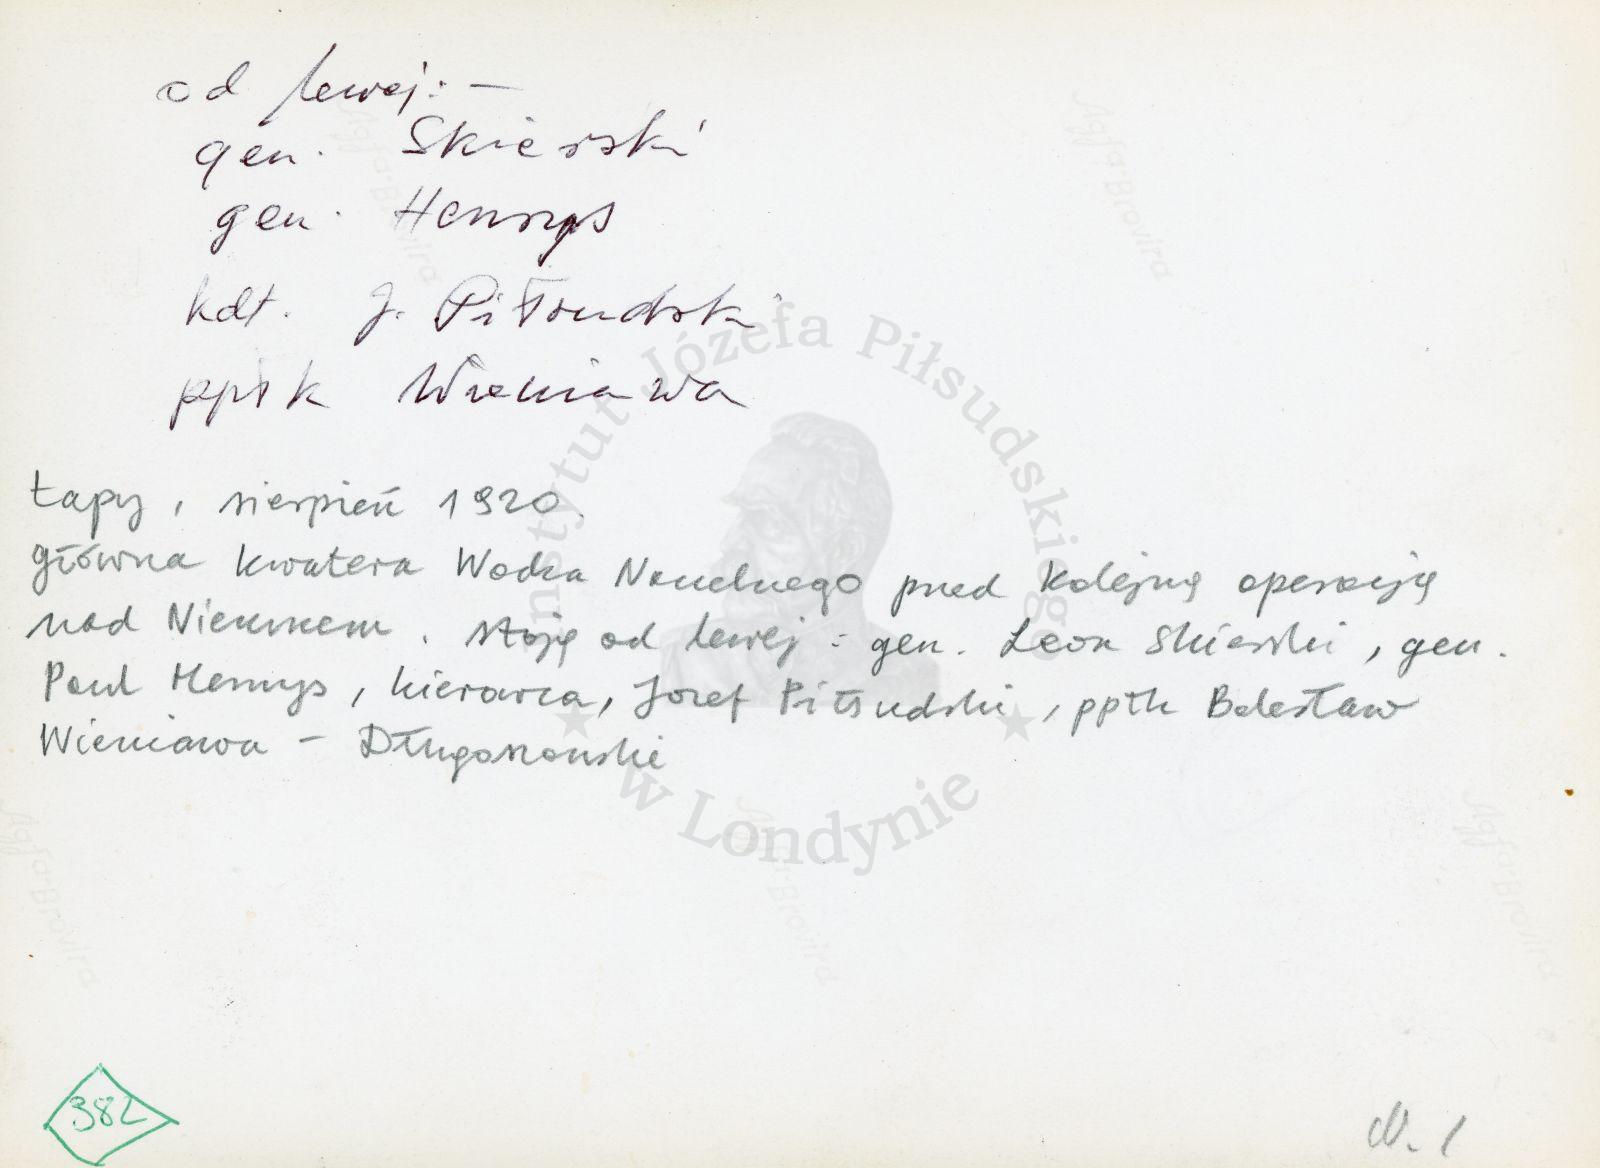 od lewej: —
gen. Skierski
gen. Henrys
kdt. J. Piłsudski
ppłk Wieniawa
Łapy, sierpień 1920.
główna kwatera Wodza Naczelnego przed kolejną operacją
nad Niemnem. stoją od lewej: gen. Leon Skierski, gen.
Paul Henrys, kierowca, Józef Piłsudski, ppłk Bolesław
Wieniawa - Długoszowski
382
N. 1
Instytut Józefa Piłsudskiego
w Londynie
Agfa-Brovira
Agfa-Brovira
Agfa-Brovira
Agfa-Brovira
Agfa-Brovira